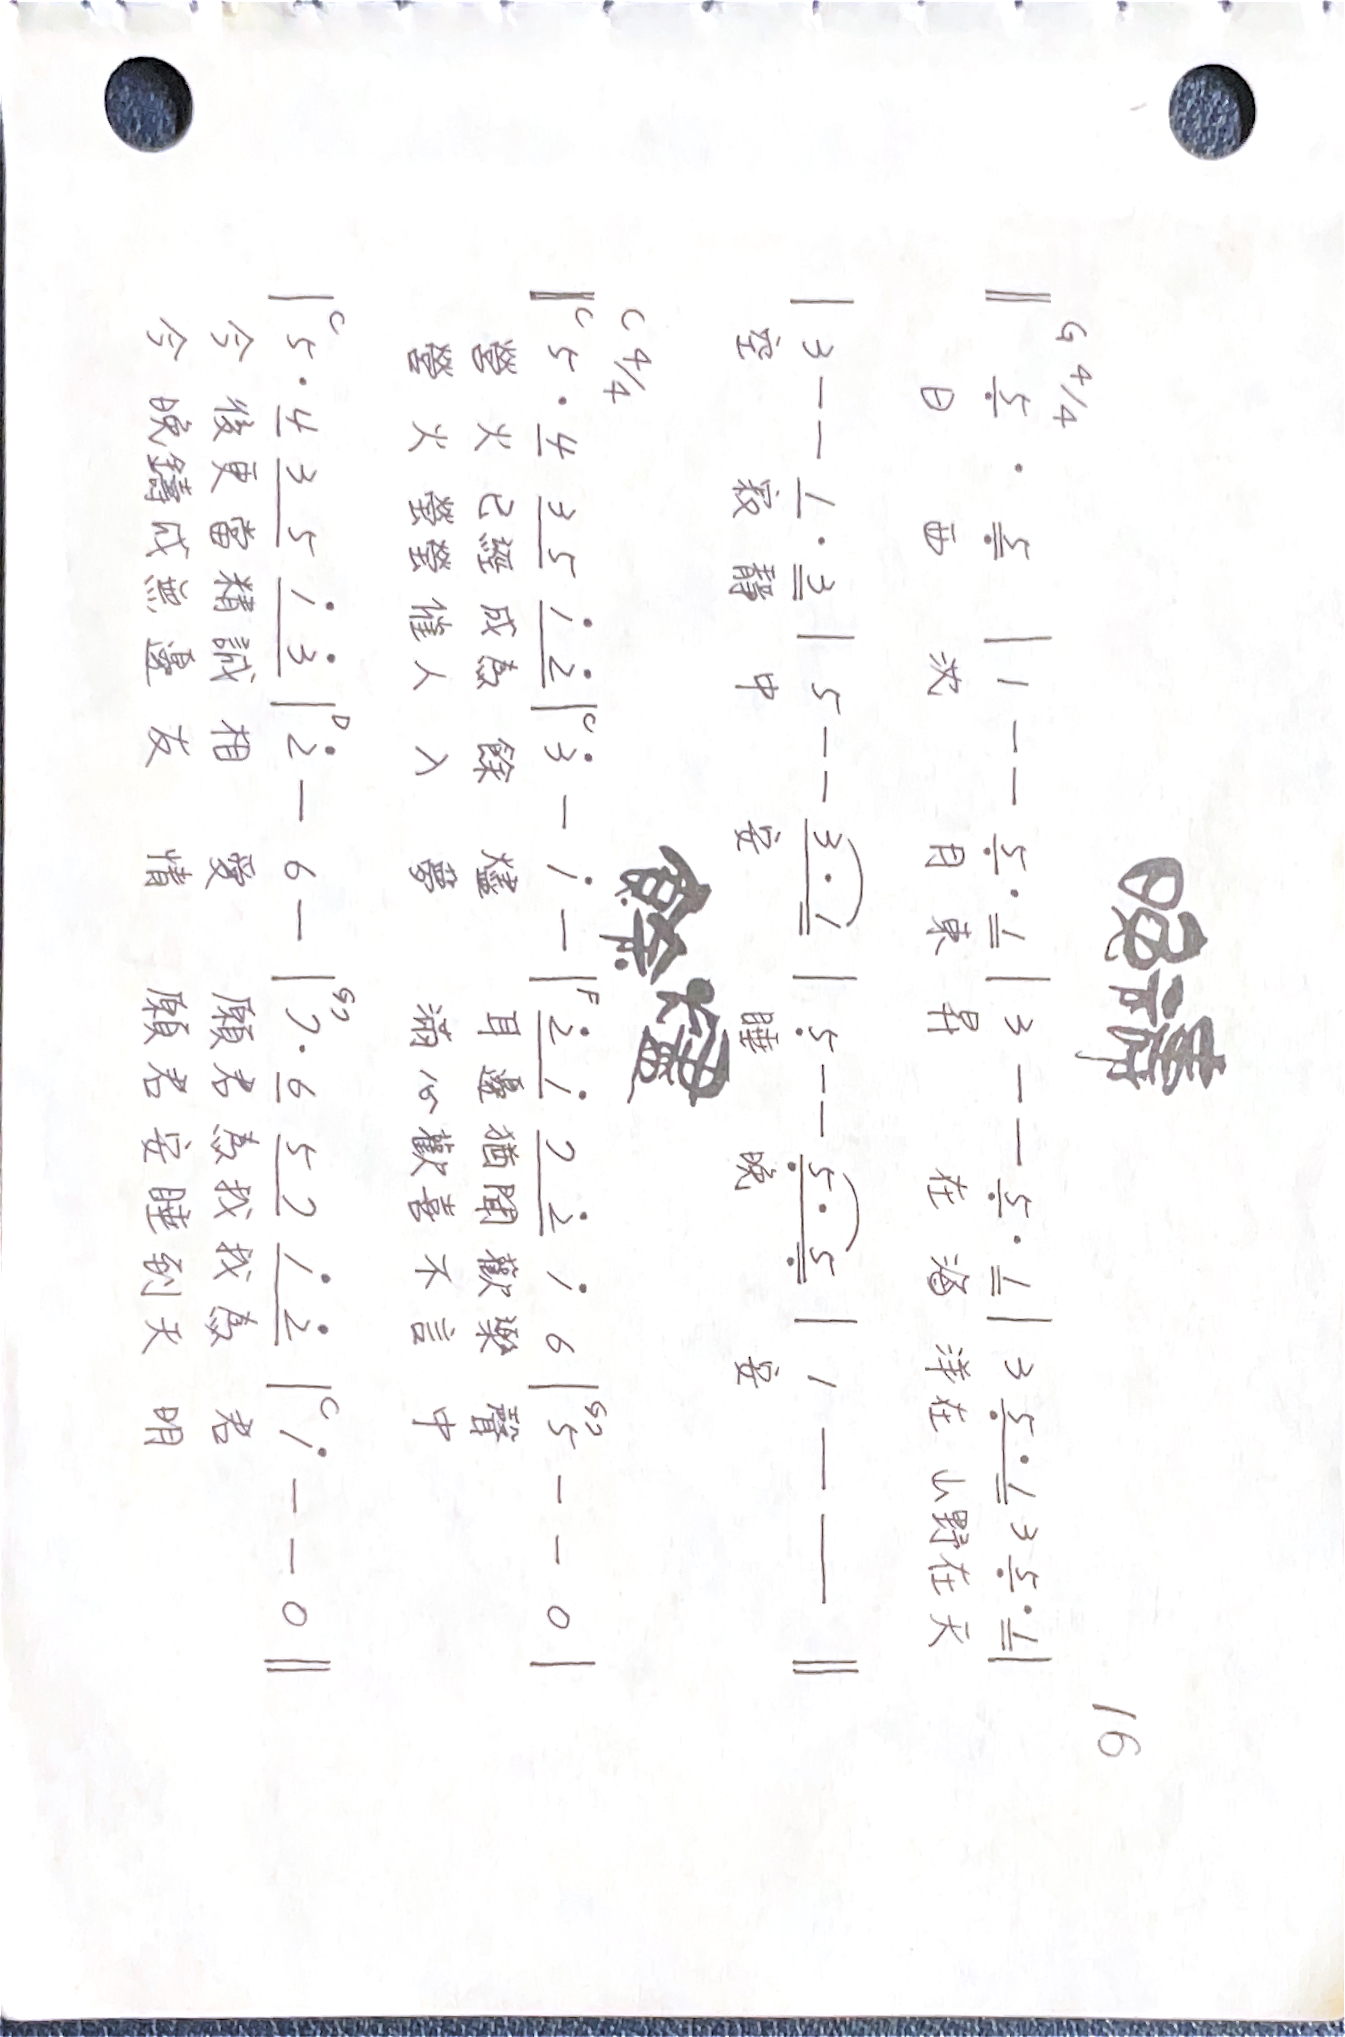 晚禱
16
G 4/4
‖ 5̣ · 5̣ | 1 — — 5̣ · 1 | 3 — — 5̣ · 1 | 3 5̣ · 1 3 5̣ · 1 |
日 西 沈 月 東 昇 在 海 洋 在 山 野 在 天
| 3 — — 1 · 3 | 5 — — 3 · 1 | 5̣ — — 5̣ · 5̣ | 1 — — ‖
空 寂 靜 中 安 睡 晚 安
餘燼
C 4/4
‖ C 5 · 4 3 5 1̇ 2̇ | C 3̇ — 1̇ — | F 2̇ 1̇ 7 2̇ 1̇ 6 | G7 5 — — 0 |
營 火 已 經 成 為 餘 燼 耳 邊 猶 聞 歡 樂 聲
營 火 螢 螢 催 人 入 夢 滿 心 歡 喜 不 言 中
| C 5 · 4 3 5 1̇ 3̇ | D 2̇ — 6 — | G7 7 · 6 5 7 1̇ 2̇ | C 1̇ — — 0 ‖
今 後 更 當 精 誠 相 愛 願 君 為 我 我 為 君
今 晚 鑄 成 無 邊 友 情 願 君 安 睡 到 天 明